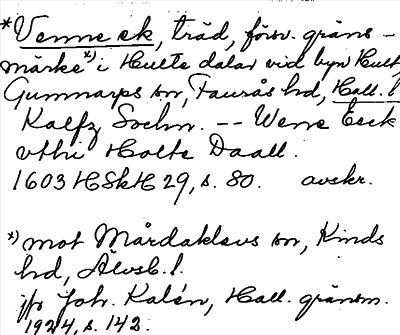 *Venne ek, träd, försv. gräns-
märke *) i Hulte dalar vid byn Hult,
Gunnarps sn, Faurås hd, Hall. l
Kalfz Sochn. -- Wene Eeck
vthi Holte Daall.
1603 HSkH 29, s. 80. avskr.
*) mot Mårdaklevs sn, Kinds
hd, Älvsb. l.
jfr Joh. Kalén, Hall. gränsm.
1924, s. 142.